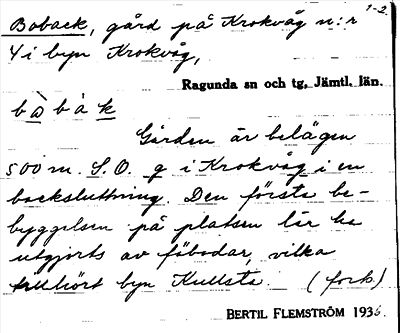 1-2.
Boback, gård på Krokvåg n:r
4 i byn Krokvåg,
Ragunda sn och tg, Jämtl. län.
bòbàk
Gården är belägen
500 m. S.O. g i Krokvåg i en
backsluttning. Den första be-
byggelsen på platsen lär ha
utgjorts av fäbodar, vilka
tillhört byn Kullsta. (forts.)
BERTIL FLEMSTRÖM 1936.